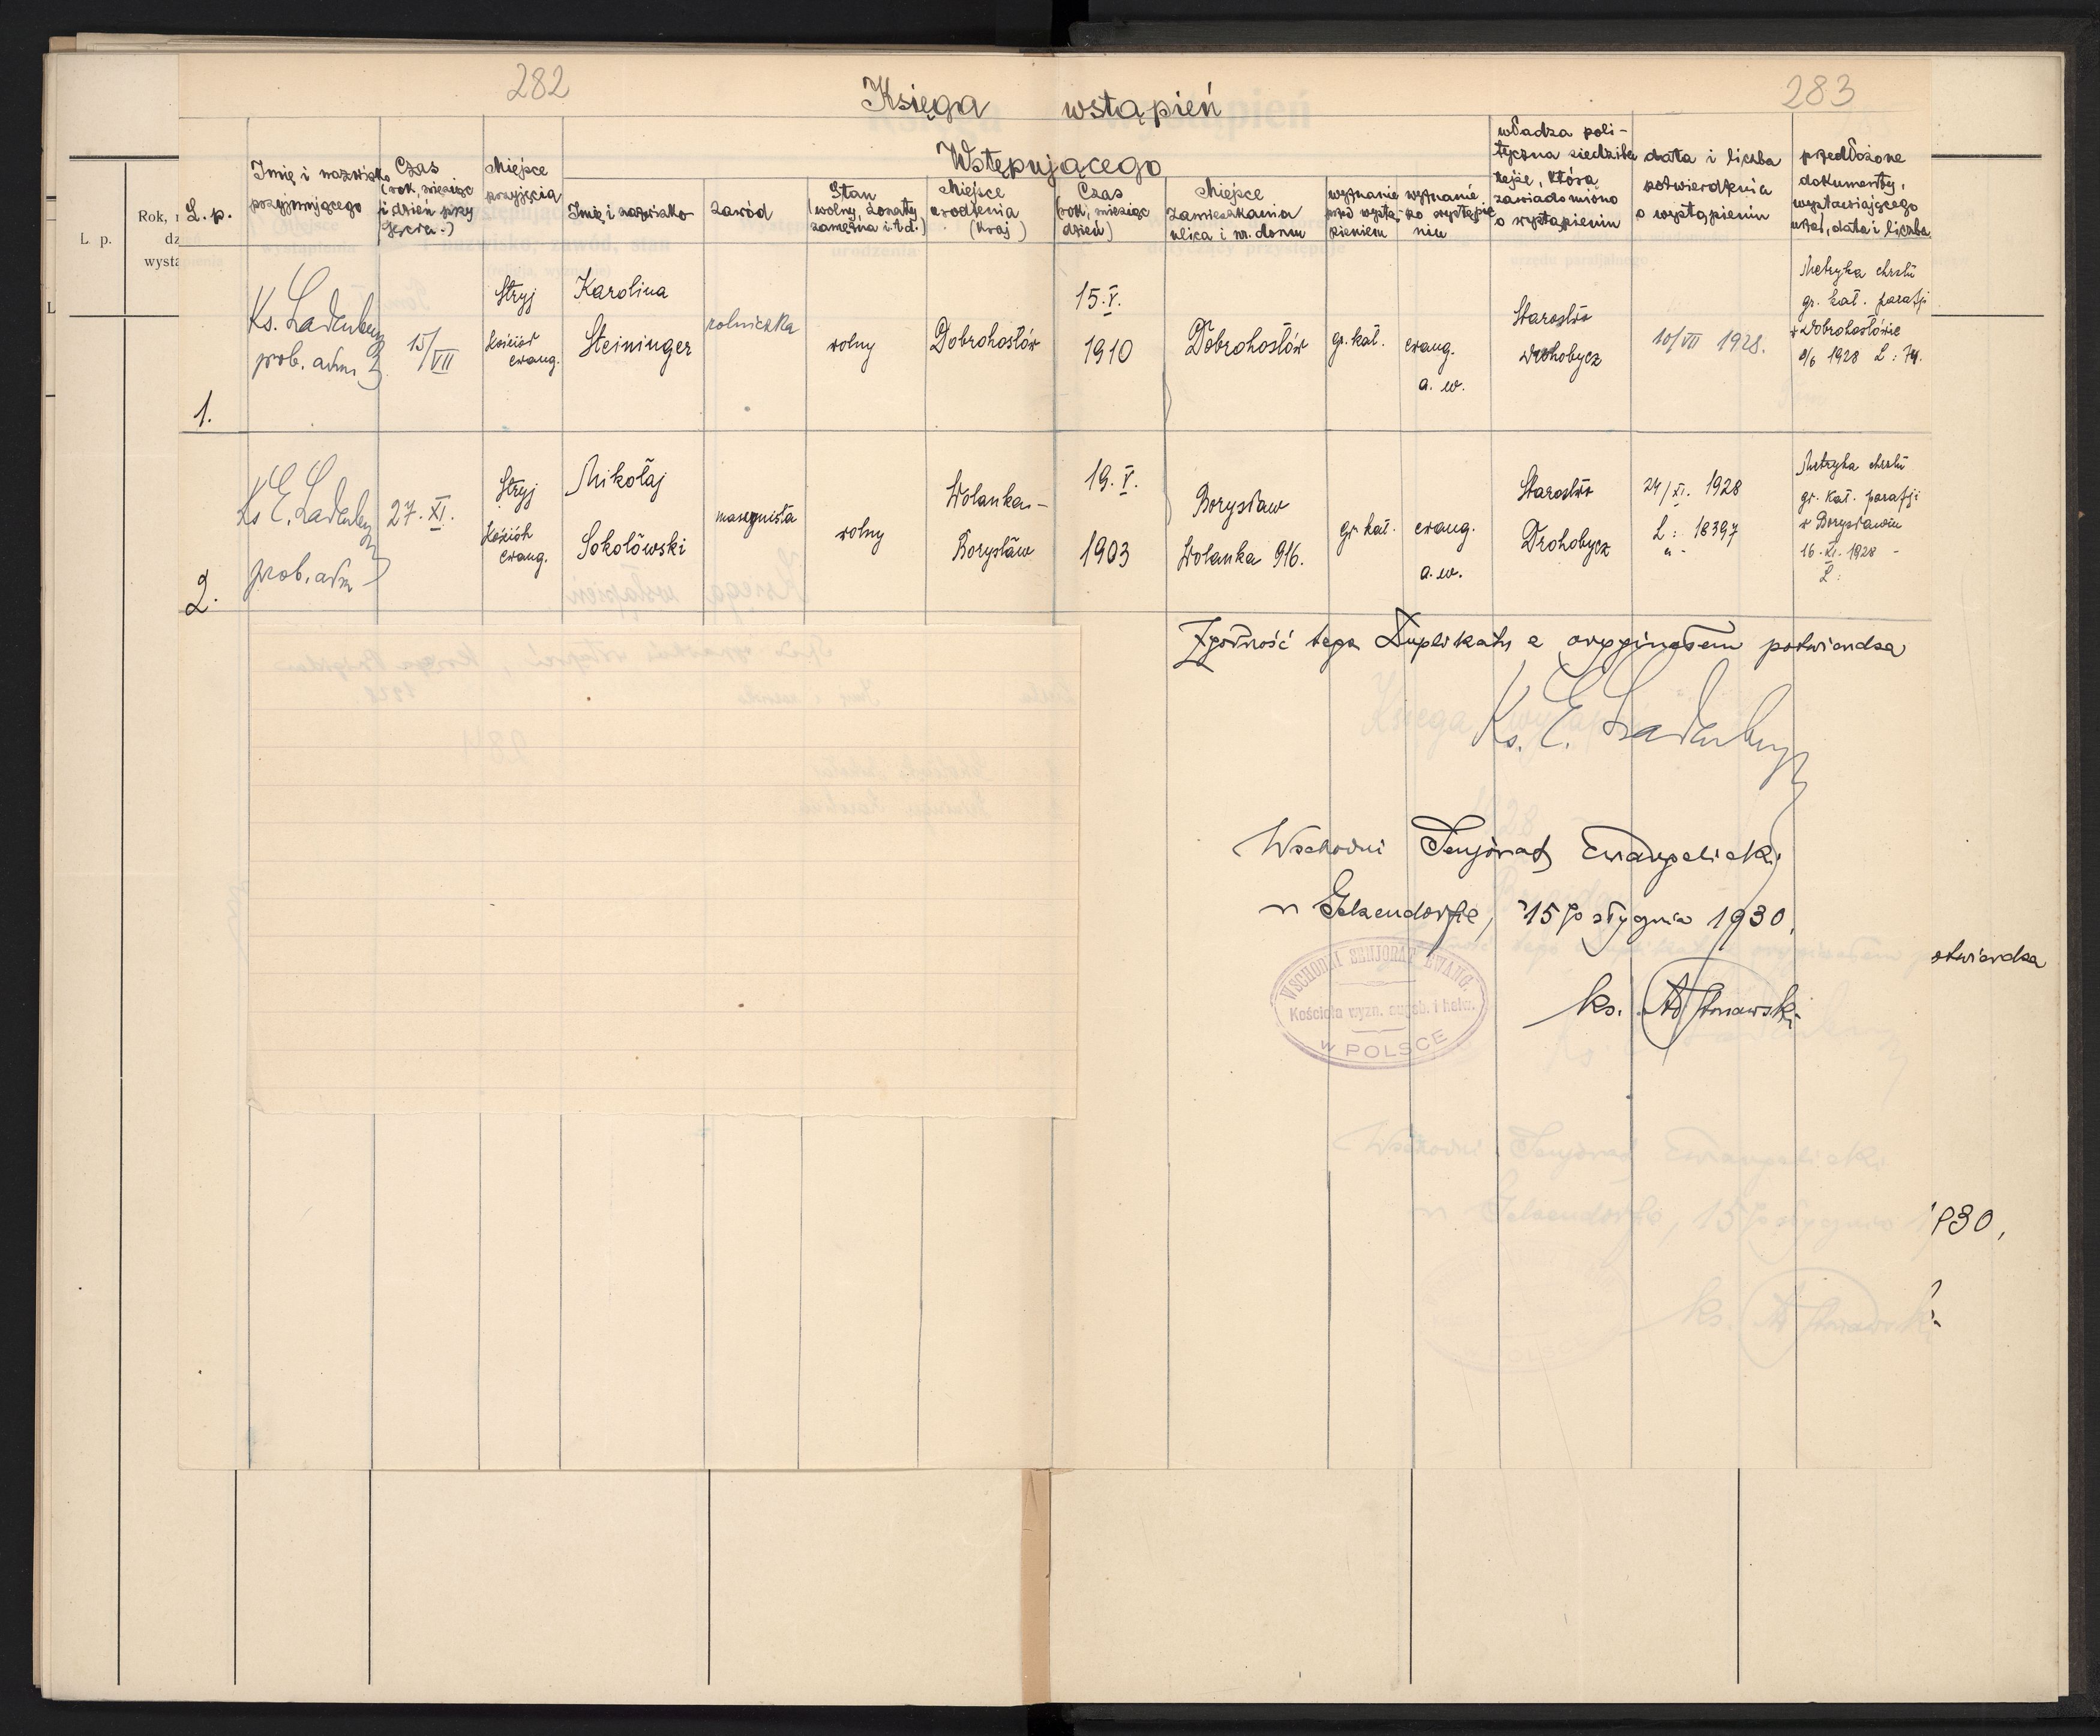 282
283
Księga wstąpień
L. p.
Imię i nazwisko
przyjmującego
Czas
(rok, miesiąc
i dzień przy
jęcia.)
Miejsce
przyjęcia
Wstępującego
Imię i nazwisko
zawód
Stan
(wolny, żonaty,
zamężna i.t.d.)
Miejsce
urodzenia
(kraj)
Czas
(rok, miesiąc
dzień)
Miejsce
zamieszkania
ulica i nr. domu
wyznanie
przed wystą-
pieniem
wyznanie
po wystąpie
niu
władza poli-
tyczna siedziba
tejże, którą
zawiadomiono
o wystąpieniu
data i liczba
potwierdzenia
o wystąpieniu
przedłożone
dokumenty,
wystawiającego
urząd, data i liczba
L p.
Rok,
dz
wystą
L
1.
Ks. Ladenberger
prob. adm.
15/VII
Stryj
Kościół
ewang.
Karolina
Steininger
rolniczka
wolny
Dobrohostów
15. V.
1910
Dobrohostów
gr. kat.
ewang.
a. w.
Starostwo
Drohobycz
10/VII 1928.
Metryka chrztu
gr. kat. parafji
w Dobrohostowie
9/6 1928 L: 74.
2.
Ks E. Ladenberger
prob. adm
27. XI.
Stryj
Kościół
ewang.
Mikołaj
Sokołowski
maszynista
wolny
Wolanka-
Borysław
19. V.
1903
Borysław
Wolanka 916.
gr. kat.
ewang.
a. w.
Starostwo
Drohobycz
24/XI. 1928
L: 18397
Metryka chrztu
gr. kat. parafji
w Borysławiu
16. XI. 1928 -
L:
Zgodność tego Duplikatu z oryginałem potwierdza
Ks. E. Ladenberger
Wschodni Senjorat Ewangelicki
w Gelsendorfie, 15go stycznia 1930,
WSCHODNI SENJORAT EWANG.
Kościoła wyzn. augsb. i helw.
w POLSCE
ks.
otwierdza
1930,